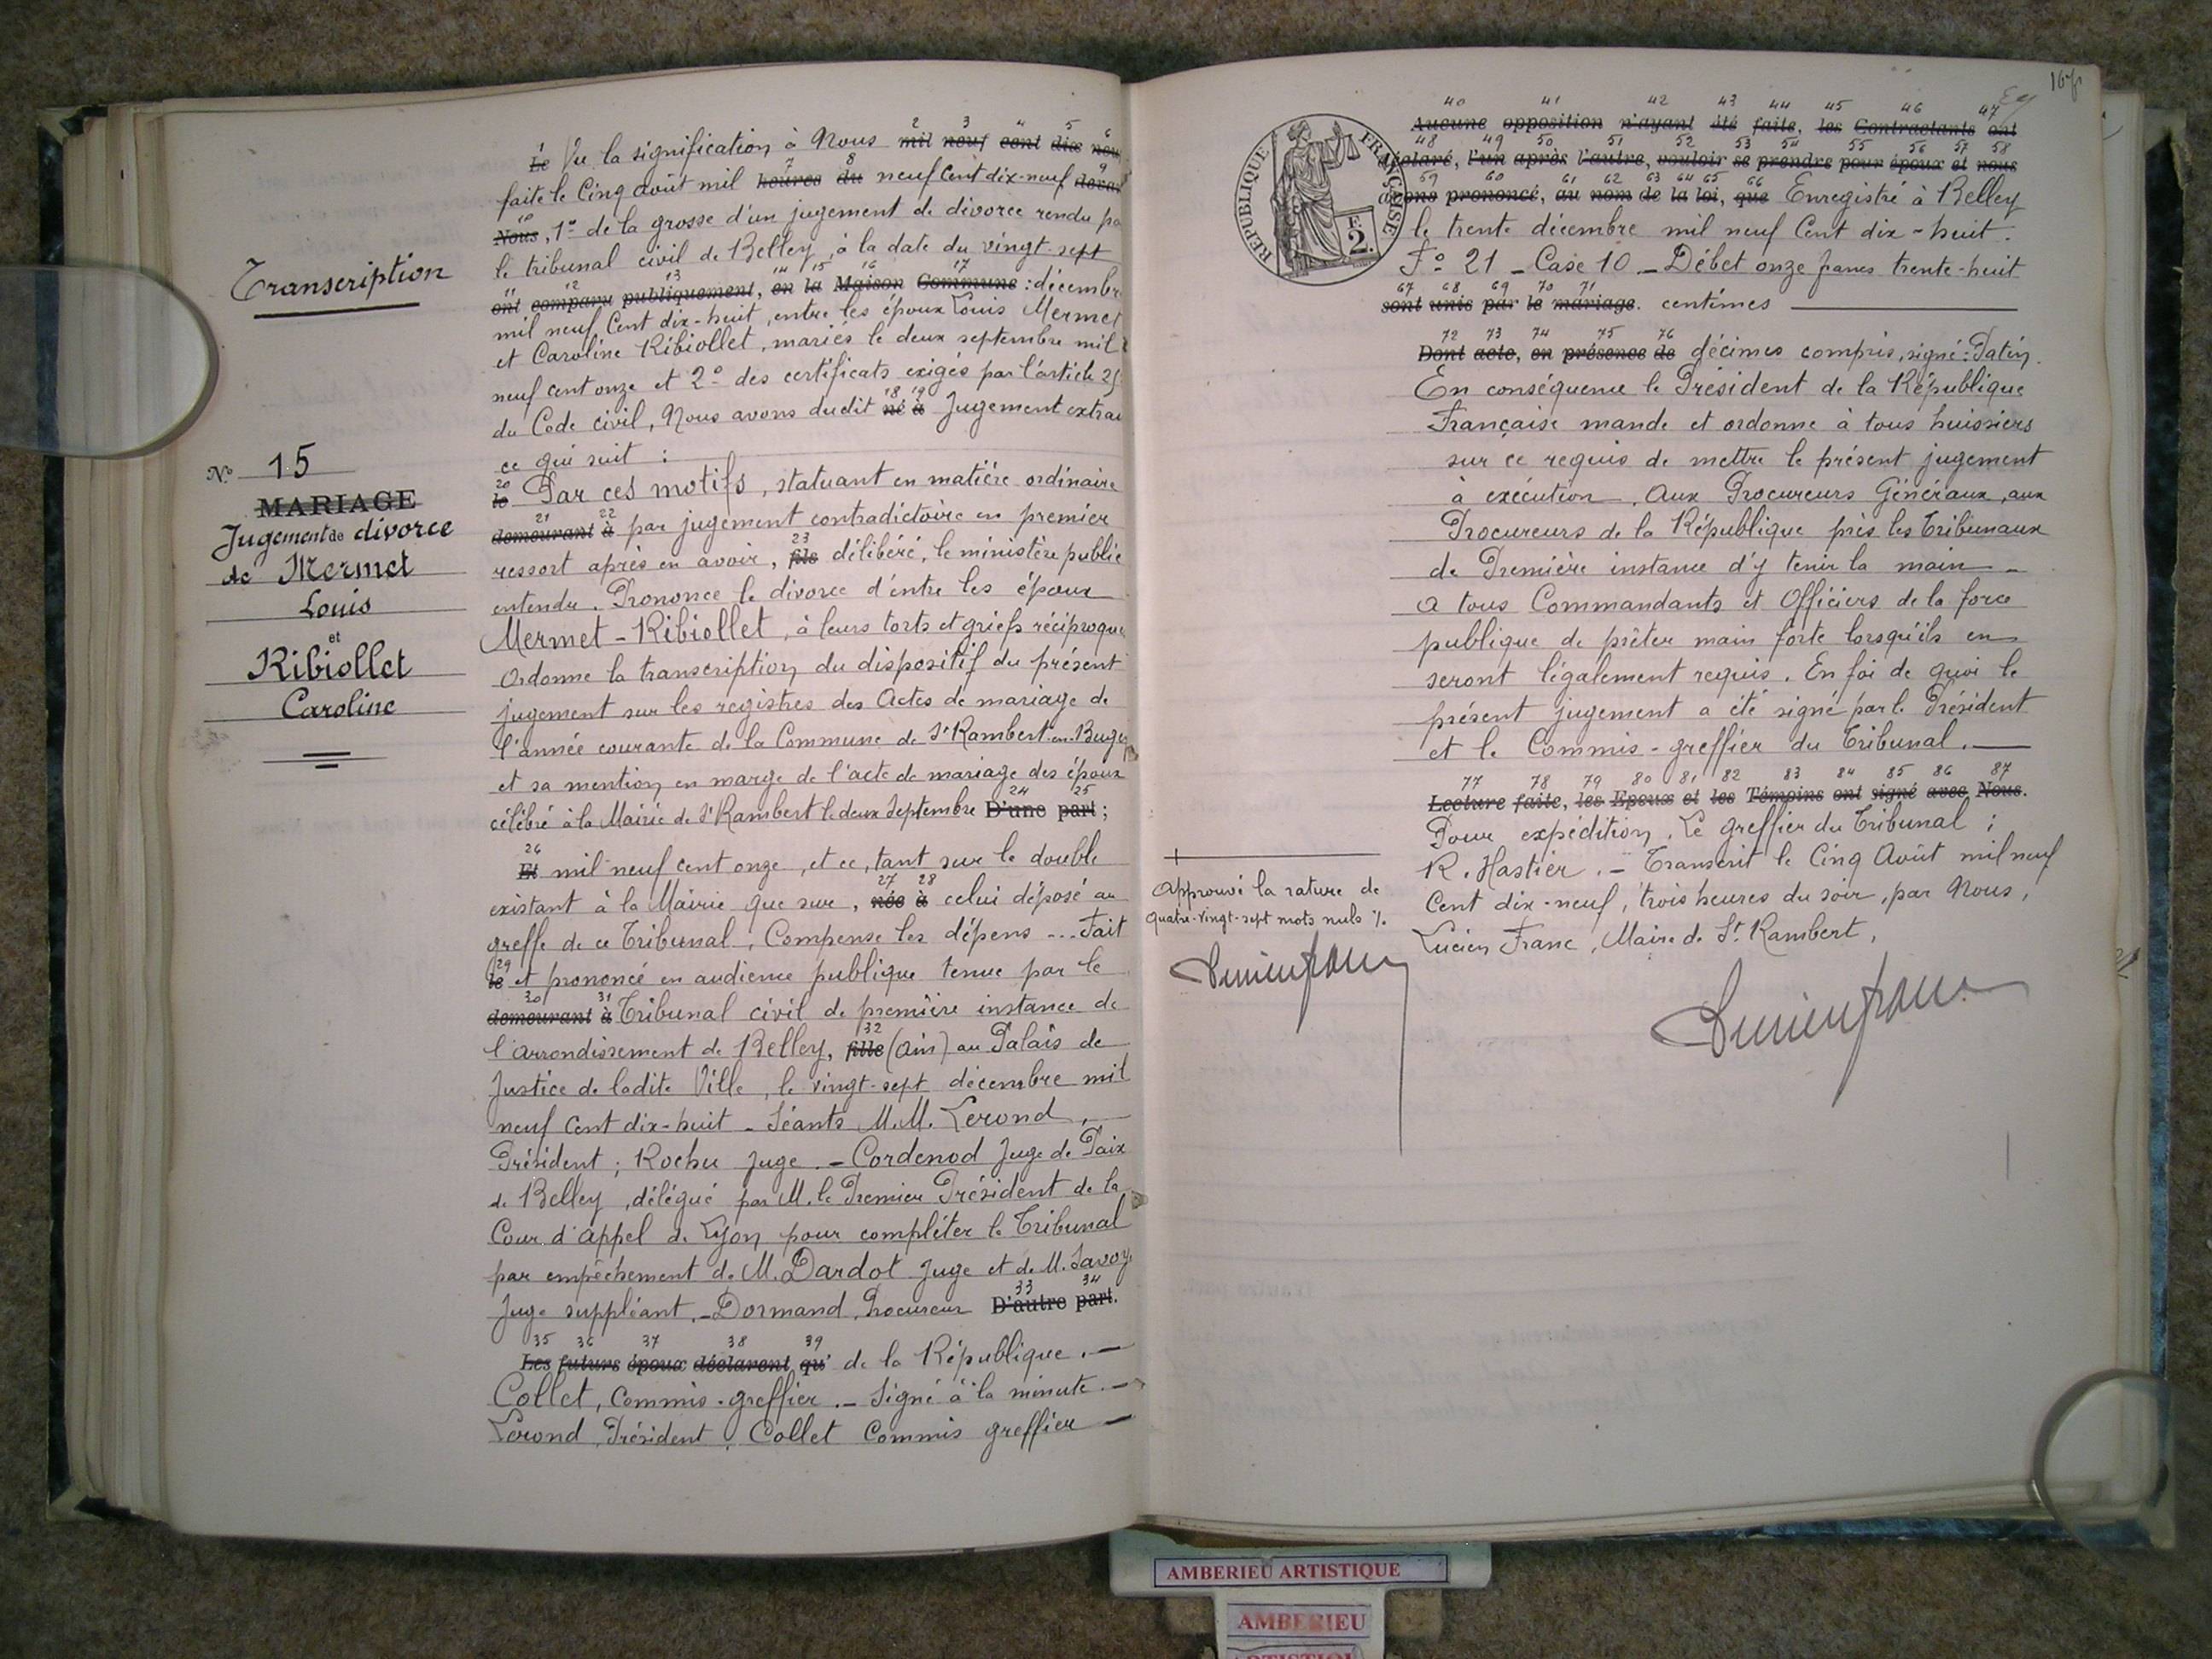 Transcription
N° 15
MARIAGE
Jugement de divorce
de Mermet
Louis
et
Ribiollet
Caroline
2 3 4 5 6
Le Vu la signification à Nous mil neuf cent dix neu
7 8 9
faite le Cinq août mil heures du neuf Cent dix-neuf devan
10
Nous, 1° de la grosse d'un jugement de divorce rendu pa
le tribunal civil de Belley, à la date du vingt-sept
11 12 13 14 15 16 17
ont comparu publiquement, en la Maison Commune : décembre
mil neuf Cent dix-huit, entre les époux Louis Mermet
et Caroline Ribiollet, mariés le deux septembre mil
neuf cent onze et 2° des certificats exigés par l'article 25
18 19
du Code civil, Nous avons dudit né à Jugement extrai
ce qui suit :
20
le Par ces motifs, statuant en matière ordinaire
21 22
demeurant à par jugement contradictoire en premier
23
ressort après en avoir, fils délibéré, le ministère public
entendu. Prononce le divorce d'entre les époux
Mermet-Ribiollet, à leurs torts et griefs réciproques
Ordonne la transcription du dispositif du présent
jugement sur les registres des Actes de mariage de
l'année courante de la Commune de St Rambert-en-Bugey
et sa mention en marge de l'acte de mariage des époux
24 25
célébré à la Mairie de St Rambert le deux Septembre D'une part ;
26
Et mil neuf cent onze, et ce, tant sur le double
27 28
existant à la Mairie que sur, née à celui déposé au
greffe de ce Tribunal, Compense les dépens - - - Fait
29
le et prononcé en audience publique tenue par le
30 31
demeurant à Tribunal civil de première instance de
32
l'arrondissement de Belley, fille (Ain) au Palais de
Justice de ladite Ville, le vingt-sept décembre mil
neuf Cent dix-huit - Séants M.M. Lerond,
Président ; Rochu Juge. - Cordenod Juge de Paix
de Belley, délégué par M. le Premier Président de la
Cour d'appel de Lyon pour compléter le Tribunal
par empêchement de M. Dardot Juge et de M. Savoy
33 34
Juge suppléant. - Dormand, Procureur D'autre part.
35 36 37 38 39
Les futurs époux déclarent qu' de la République. -
Collet, Commis-greffier. - Signé à la minute. -
Lerond, Président, Collet Commis greffier -
167
REPUBLIQUE FRANÇAISE
F.
2.
40 41 42 43 44 45 46 47
Aucune opposition n'ayant été faite, les Contractants ont
48 49 50 51 52 53 54 55 56 57 58
déclaré, l'un après l'autre, vouloir se prendre pour époux et nous
59 60 61 62 63 64 65 66
avons prononcé, au nom de la loi, que Enregistré à Belley
le trente décembre mil neuf Cent dix-huit.
F° 21 - Case 10 - Débet onze francs trente-huit
67 68 69 70 71
sont unis par le mariage. centimes
72 73 74 75 76
Dont acte, en présence de décimes compris, signé : Patin.
En conséquence le Président de la République
Française mande et ordonne à tous huissiers
sur ce requis de mettre le présent jugement
à exécution. Aux Procureurs Généraux, aux
Procureurs de la République près les Tribunaux
de Première instance d'y tenir la main -
à tous Commandants et Officiers de la force
publique de prêter main forte lorsqu'ils en
seront légalement requis. En foi de quoi le
présent jugement a été signé par le Président
et le Commis-greffier du Tribunal.
77 78 79 80 81 82 83 84 85 86 87
Lecture faite, les Epoux et les Témoins ont signé avec Nous.
Pour expédition. Le greffier du Tribunal ;
R. Hastier. - Transcrit le Cinq Août mil neuf
Cent dix-neuf, trois heures du soir, par Nous,
Lucien Franc, Maire de St. Rambert,
Lucien Franc
Approuvé la rature de
quatre-vingt-sept mots nuls %.
Lucien Franc
AMBERIEU ARTISTIQUE
AMBERIEU
ARTISTIQUE